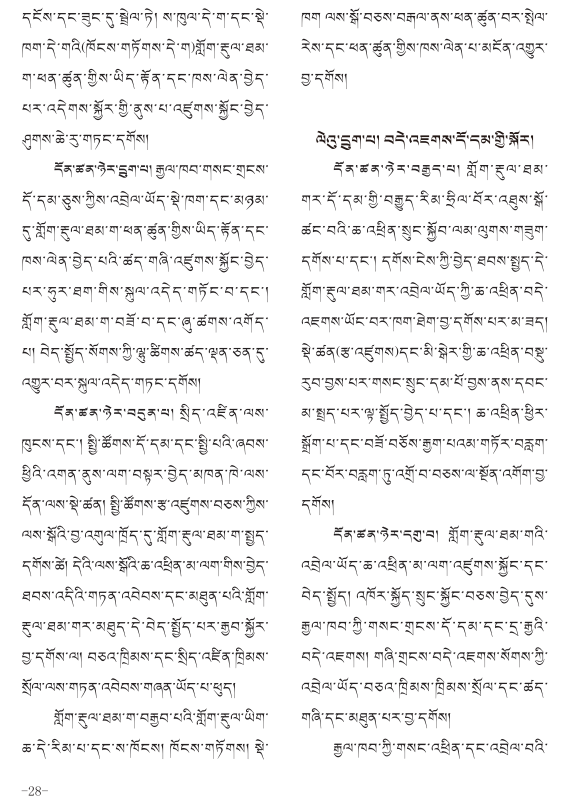 དངོས་དང་ཟུང་དུ་སྦྲེལ་ཏེ། ས་ཁུལ་དེ་ག་དང་སྡེ་
ཁག་དེ་གའི(ཁོངས་གཏོགས་དེ་ག)གློག་རྡུལ་ཐམ་
ག་ཕན་ཚུན་གྱིས་ཡིད་རྟོན་དང་ཁས་ལེན་བྱེད་
པར་འདེགས་སྐྱོར་གྱི་ནུས་པ་འཛུགས་སྐྱོང་བྱེད་
ཤུགས་ཆེ་རུ་གཏང་དགོས།
དོན་ཚན་ཉེར་དྲུག་པ། རྒྱལ་ཁབ་གསང་གྲངས་
དོ་དམ་ཅུས་ཀྱིས་འབྲེལ་ཡོད་སྡེ་ཁག་དང་མཉམ་
དུ་གློག་རྡུལ་ཐམ་ག་ཕན་ཚུན་གྱིས་ཡིད་རྟོན་དང་
ཁས་ལེན་བྱེད་པའི་ཚད་གཞི་འཛུགས་སྐྱོང་བྱེད་
པར་ཧུར་ཐག་གིས་སྐུལ་འདེད་གཏོང་བ་དང་།
གློག་རྡུལ་ཐམ་ག་བཟོ་བ་དང་ཞུ་ཚགས་འགོད་
པ། བེད་སྤྱོད་སོགས་ཀྱི་ལྷུ་ཚིགས་ཚད་ལྡན་ཅན་དུ་
འགྱུར་བར་སྐུལ་འདེད་གཏང་དགོས།
དོན་ཚན་ཉེར་བདུན་པ། སྲིད་འཛིན་ལས་
ཁུངས་དང་། སྤྱི་ཚོགས་དོ་དམ་དང་སྤྱི་པའི་ཞབས་
ཕྱིའི་འགན་ནུས་ལག་བསྟར་བྱེད་མཁན་ཁེ་ལས་
དོན་ལས་སྡེ་ཚན། སྤྱི་ཚོགས་རྩ་འཛུགས་བཅས་ཀྱིས་
ལས་སྒོའི་བྱ་འགུལ་ཁྲོད་དུ་གློག་རྡུལ་ཐམ་ག་སྤྱད་
དགོས་ཚེ། དེའི་ལས་སྒོའི་ཆ་འཕྲིན་མ་ལག་གིས་བྱེད་
ཐབས་འདིའི་གཏན་འབེབས་དང་མཐུན་པའི་གློག་
རྡུལ་ཐམ་གར་མཐུད་དེ་བེད་སྤྱོད་པར་རྒྱབ་སྐྱོར་
བྱ་དགོས་ལ། བཅའ་ཁྲིམས་དང་སྲིད་འཛིན་ཁྲིམས་
སྲོལ་ལས་གཏན་འབེབས་གཞན་ཡོད་པ་ཕུད།
གློག་རྡུལ་ཐམ་ག་བརྒྱབ་པའི་གློག་རྡུལ་ཡིག་
ཆ་དེ་རིམ་པ་དང་ས་ཁོངས། ཁོངས་གཏོགས། སྡེ་
ཁག་ལས་སྒོ་བཅས་བརྒལ་ནས་ཕན་ཚུན་བར་སྤེལ་
རེས་དང་ཕན་ཚུན་གྱིས་ཁས་ལེན་པ་མངོན་འགྱུར་
བྱ་དགོས།
ལེའུ་དྲུག་པ། བདེ་འཇགས་དོ་དམ་གྱི་སྐོར།
དོན་ཚན་ཉེར་བརྒྱད་པ། གློག་རྡུལ་ཐམ་
གར་དོ་དམ་གྱི་བརྒྱུད་རིམ་ཧྲིལ་བོར་འཐུས་སྒོ་
ཚང་བའི་ཆ་འཕྲིན་སྲུང་སྐྱོབ་ལམ་ལུགས་གཟུག་
དགོས་པ་དང་། དགོས་ངེས་ཀྱི་བྱེད་ཐབས་སྤྱད་དེ་
གློག་རྡུལ་ཐམ་གར་འབྲེལ་ཡོད་ཀྱི་ཆ་འཕྲིན་བདེ་
འཇགས་ཡོང་བར་ཁག་ཐེག་བྱ་དགོས་པར་མ་ཟད།
སྡེ་ཚན(རྩ་འཛུགས)དང་མི་སྒེར་གྱི་ཆ་འཕྲིན་བསྡུ་
རུབ་བྱས་པར་གསང་སྲུང་དམ་པོ་བྱས་ནས་དབང་
མ་སྤྲད་པར་ལྟ་སྤྱོད་བྱེད་པ་དང་། ཆ་འཕྲིན་ཕྱིར་
སྒྲོག་པ་དང་བཟོ་བཅོས་རྒྱག་པའམ་གཏོར་བརླག་
དང་བོར་བརླག་ཏུ་འགྲོ་བ་བཅས་ལ་སྔོན་འགོག་བྱ་
དགོས།
དོན་ཚན་ཉེར་དགུ་བ། གློག་རྡུལ་ཐམ་གའི་
འབྲེལ་ཡོད་ཆ་འཕྲིན་མ་ལག་འཛུགས་སྐྱོང་དང་
བེད་སྤྱོད། འཁོར་སྐྱོད་སྲུང་སྐྱོང་བཅས་བྱེད་དུས་
རྒྱལ་ཁབ་ཀྱི་གསང་གྲངས་དོ་དམ་དང་དྲ་རྒྱའི་
བདེ་འཇགས། གཞི་གྲངས་བདེ་འཇགས་སོགས་ཀྱི་
འབྲེལ་ཡོད་བཅའ་ཁྲིམས་ཁྲིམས་སྲོལ་དང་ཚད་
གཞི་དང་མཐུན་པར་བྱ་དགོས།
རྒྱལ་ཁབ་ཀྱི་གསང་འཕྲིན་དང་འབྲེལ་བའི་
-28-